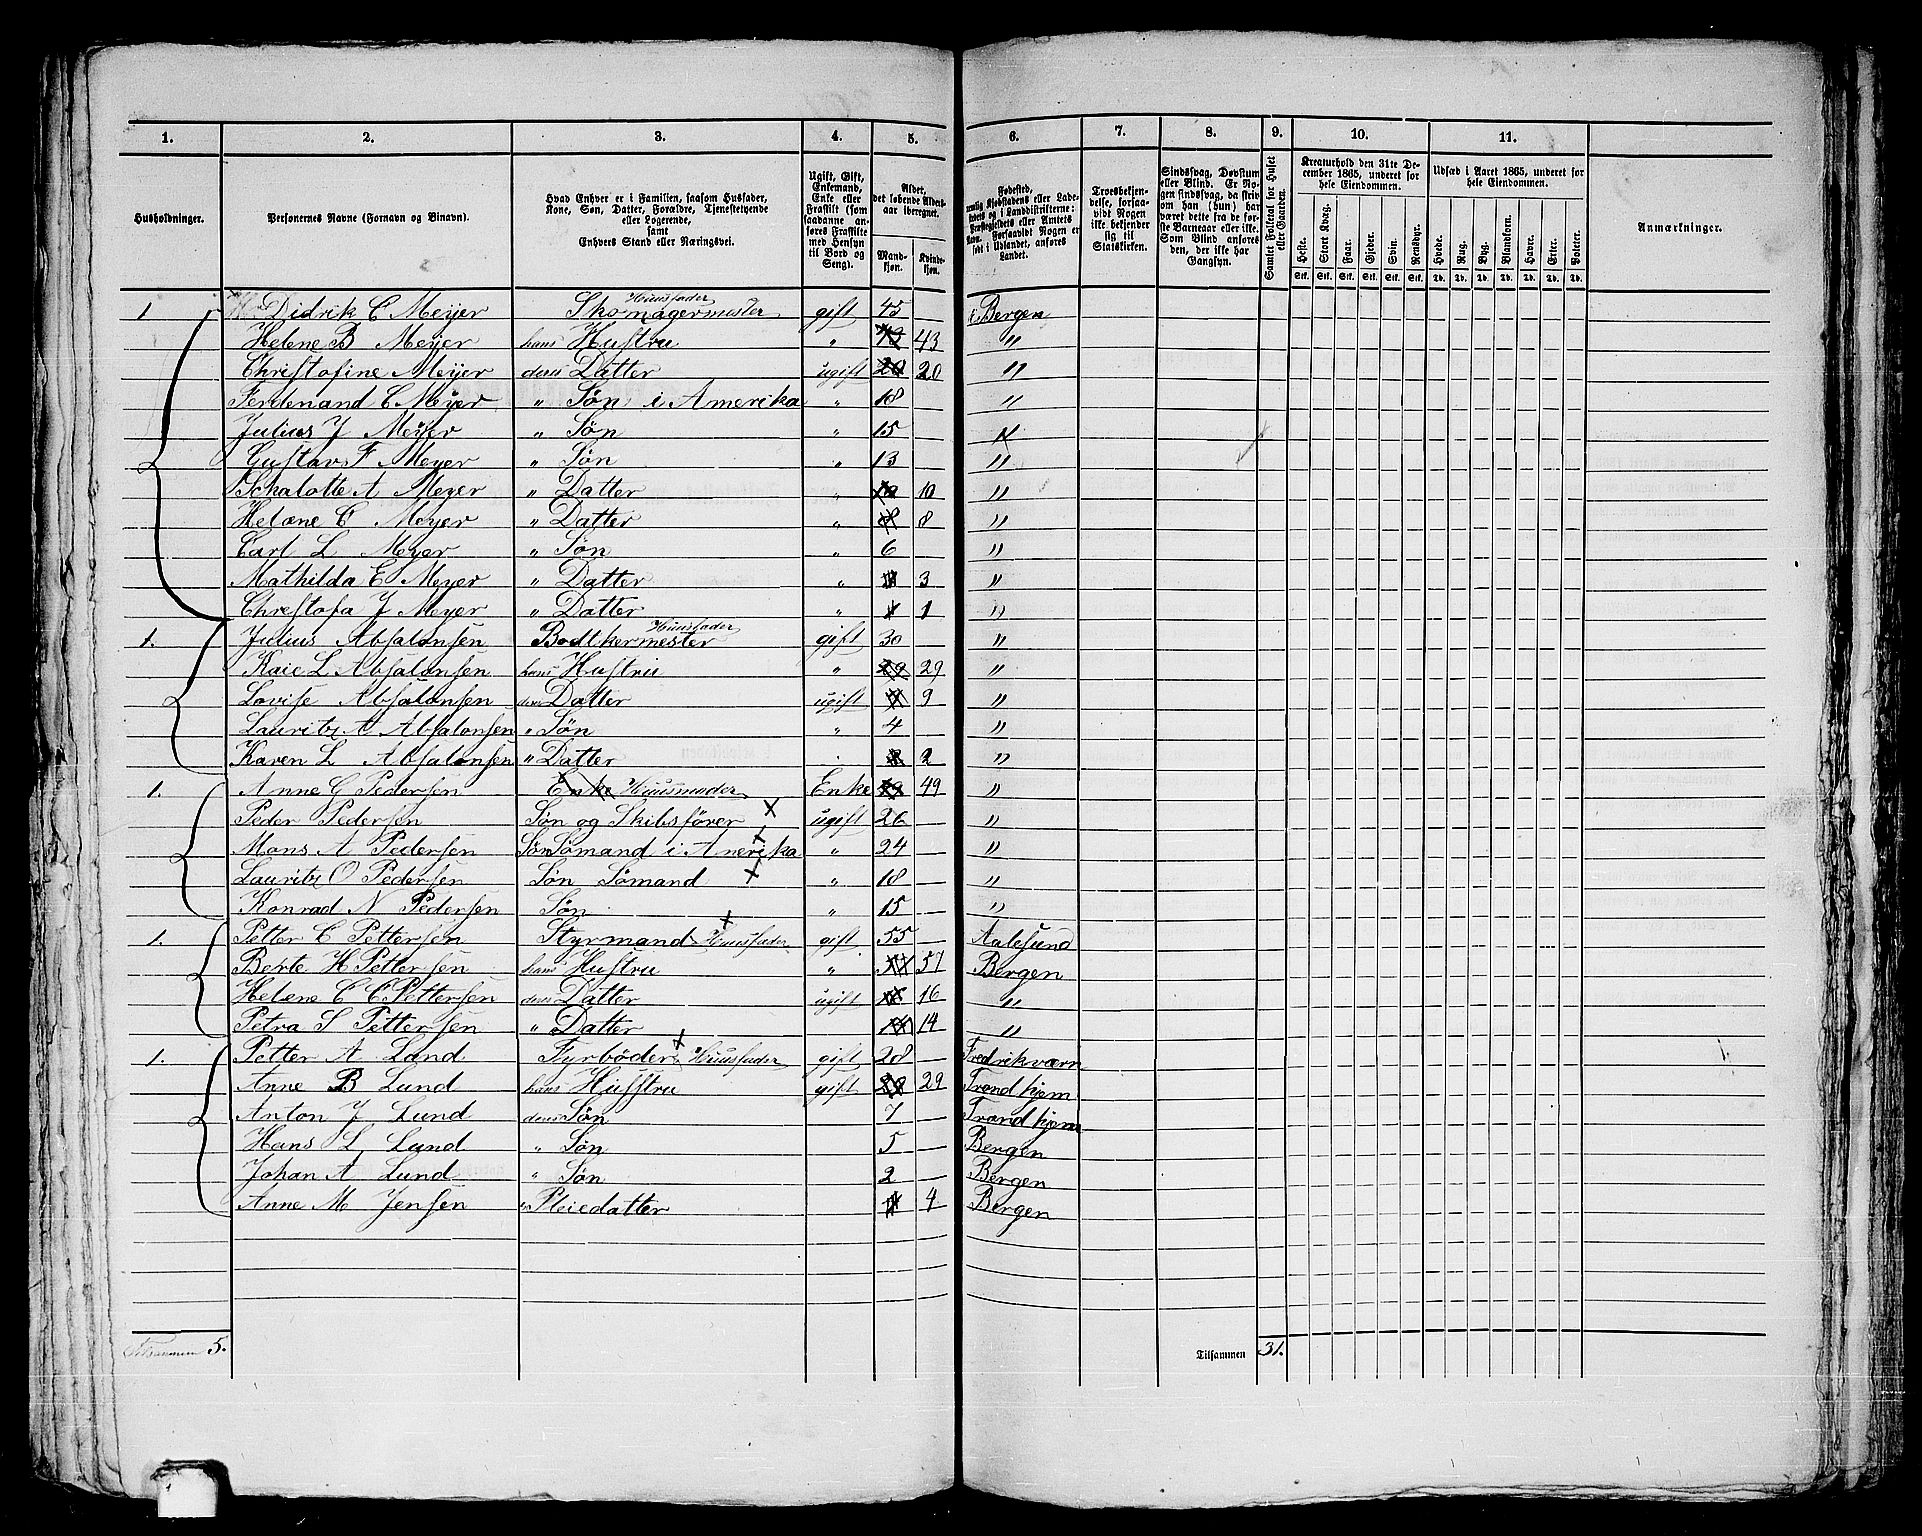 1. 2. 3. 4. 5. 6. 7. 8. 9. 10. 11.
Husholdninger.
Personernes Navne (Fornavn og Binavn).
Hvad Enhver er i Familien, saasom Husfader,
Kone, Søn, Datter, Forældre, Tjenestetyende
eller Logerende,
samt
Enhvers Stand eller Næringsvei.
Ugift, Gift,
Enkemand,
Enke eller
Fraskilt (som
saadanne an-
føres Fraskilte
med Hensyn
til Bord og
Seng).
Alder,
det løbende Alders-
aar iberegnet.
Mand-
kjøn.
Kvinde-
kjøn.
Fødested,
nemlig Kjøbstadens eller Lade-
stedets og i Landdistrikterne:
Præstegjeldets eller Amtets
Navn. Forsaavidt Nogen er
født i Udlandet, anføres
Landet.
Troesbekjen-
delse, forsaa-
vidt Nogen
ikke bekjender
sig til
Statskirken.
Sindssvag, Døvstum
eller Blind. Er No-
gen sindssvag, da skriv
om han (hun) har
været dette fra de før-
ste Barneaar eller ikke.
Som Blind anføres
den, der ikke har
Gangsyn.
Samlet Folketal for Huset
eller Gaarden.
Kreaturhold den 31te De-
cember 1865, underet for
hele Eiendommen.
Heste. Stort Kvæg. Faar. Gjeder. Svin. Rensdyr.
Stk. Stk. Stk. Stk. Stk. Stk.
Udsæd i Aaret 1865, underet for
hele Eiendommen.
Hvede. Rug. Byg. Blandkorn. Havre. Erter. Poteter.
Td. Td. Td. Td. Td. Td. Td.
Anmærkninger.
1 Didrik C Meyer Skomagermester Huusfader gift 45 Bergen
Helene B Meyer hans Hustru " 43 43 "
Christofine Meyer deres Datter ugift 20 20 "
Ferdenand C Meyer " Søn i Amerika " 18 "
Julius J Meyer " Søn " 15 "
Gustav F Meyer " Søn " 13 "
Schalotte A Meyer " Datter " 10 10 "
Helene C Meyer " Datter " 8 8 "
Carl L Meyer " Søn " 6 "
Mathilda E Meyer " Datter " 3 "
Chrestofa J Meyer " Datter " 1 1 "
1. Julius Absalonsen Bødtkermester Huusfader gift 30 "
Kaie L Absalonsen hans Hustru " 29 29 "
Lovise Absalonsen deres Datter ugift 9 "
Lauritz A Absalonsen " Søn " 4 "
Karen L Absalonsen " Datter 2 "
1. Anne G Pedersen Enke Huusmoder Enke 49 49 "
Peder Pedersen Søn og Skibsfører X ugift 26 "
Mons A Pedersen Søn Sømand i Anerika X " 24 "
Lauritz O Pedersen Søn Sömand X " 18 "
Konrad N Pedersen Søn " 15 "
1. Petter C Pettersen Styrmand X Huusfader gift 55 Aalesund
Berte H Pettersen hans Hustru " 57 Bergen
Helene C C Pettersen deres Datter ugift 16 "
Petra S Pettersen " Datter 14 "
1. Petter A Lund Fyrböder X Huusfader gift 28 Fredrikværn
Anne B Lund hans Husstru gift 29 Trondhjem
Anton J Lund deres Søn 7 Trondhjem
Hans L Lund " Søn 5 Bergen
Johan A Lund " Søn 2 Bergen
Anne M Jensen " Pleiedatter 4 Bergen
Tilsammen 5.
Tilsammen 31.